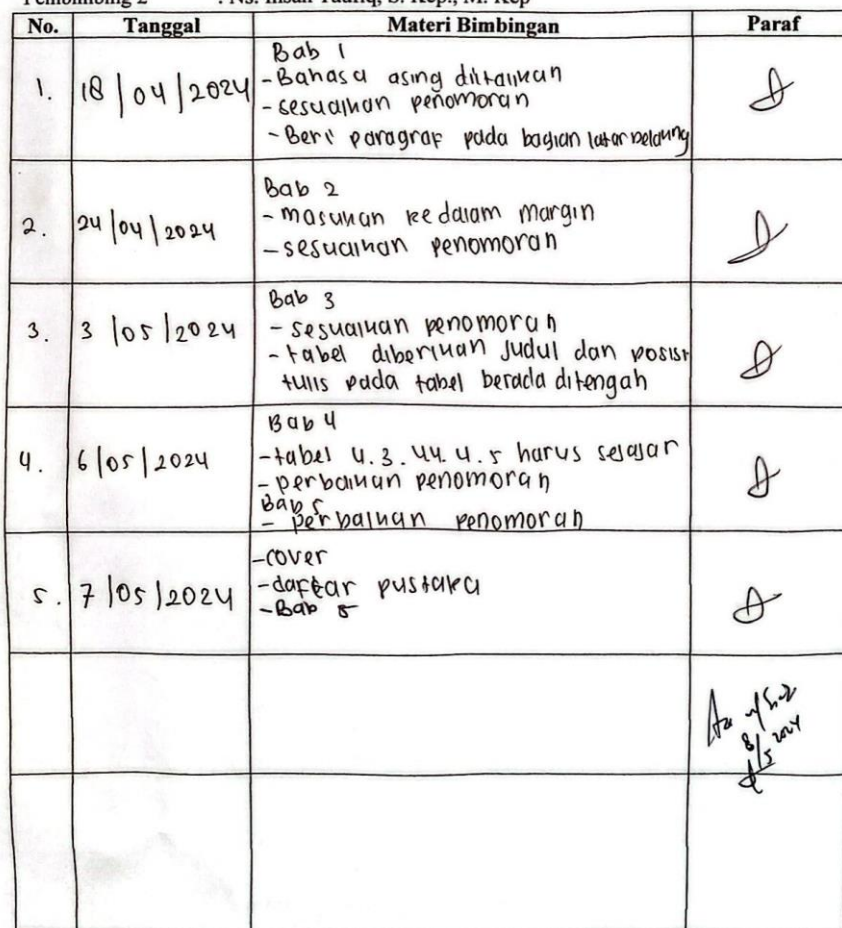 Pembimbing 2 : Ns. Ihsan Taufiq, S. Kep., M. Kep
No. Tanggal Materi Bimbingan Paraf
Bab 1
1. 18/04/2024 - Bahasa asing ditalikan
- sesuaikan penomoran
- Beri paragraf pada bagian latar belakang
Bab 2
2. 24/04/2024 - masukan kedalam margin
- sesuaikan penomoran
Bab 3
3. 3/05/2024 - sesuaikan penomoran
- tabel diberikan judul dan posisi
tulis pada tabel berada ditengah
Bab 4
4. 6/05/2024 - tabel 4.3. 4.4. 4.5 harus sejajar
- perbaikan penomoran
Bab 5
- perbaikan penomoran
- cover
5. 7/05/2024 - daftar pustaka
- Bab 5
8/5 2024